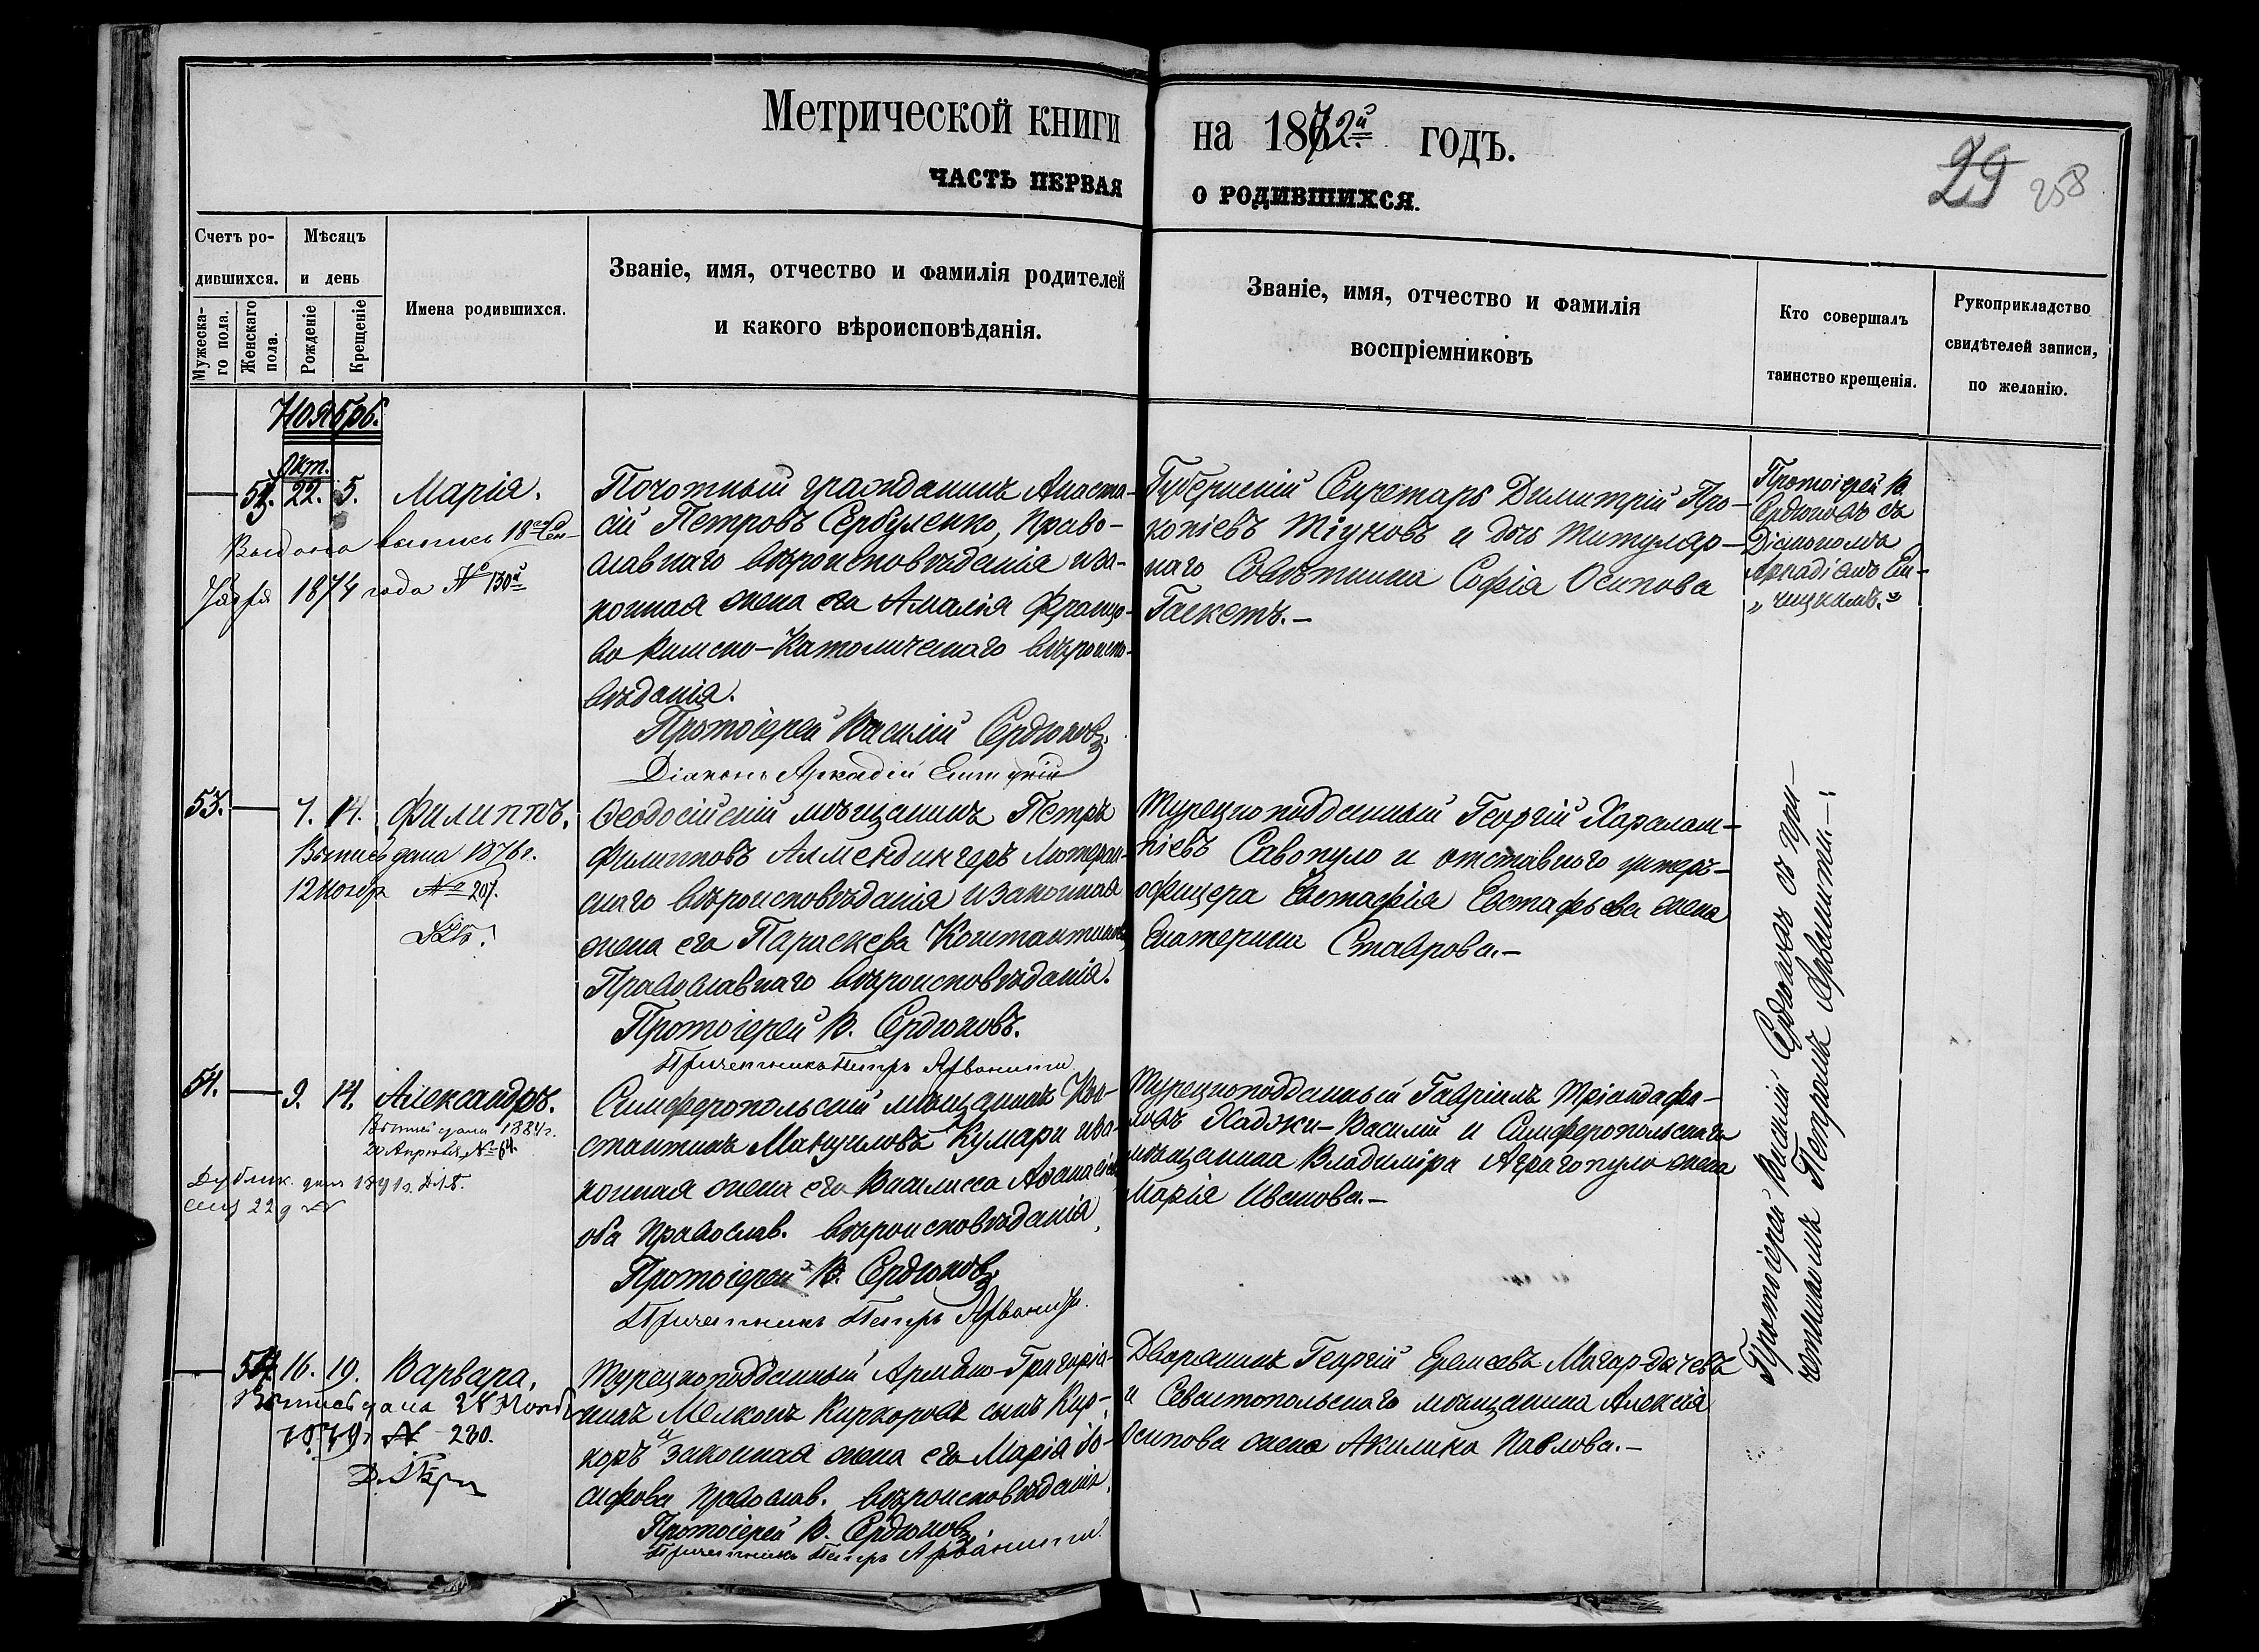 Метрической книги на 1872й годъ.
ЧАСТЬ ПЕРВАЯ О РОДИВШИХСЯ.
29 258
Счетъ ро-
дившихся.
Мѣсяцъ
и день
Мужеска-
го пола.
Женскаго
пола.
Рожденіе
Крещеніе
Имена родившихся.
Званіе, имя, отчество и фамилія родителей
и какого вѣроисповѣданія.
Званіе, имя, отчество и фамилія
воспріемниковъ
Кто совершалъ
таинство крещенія.
Рукоприкладство
свидѣтелей записи,
по желанію.
Ноябрь.
Окт.
22. 5. Марія.
Выдана выпись 18го Сен-
тября 1874 года № 130й
Почотный гражданинъ Анаста-
сій Петровъ Сербуленко, Право-
славнаго вѣроисповѣданія и за-
конная жена его Амалія Францо-
ва Римско-Католическаго вѣроиспо-
вѣданія.
Протоіерей Василій Сердюковъ
Діаконъ Аркадій
Губернскій Секретарь Димитрій Про-
копіевъ Тіуновъ и дочь Титуляр-
наго Совѣтника Софія Осипова
Гаскетъ.-
Протоіерей В.
Сердюковъ съ
Діакономъ
Аркадіемъ
53. 7. 14. Филиппъ.
Выпись дана 1876г.
12 Ноября № 207.
Ѳеодосійскій мѣщанинъ Петръ
Филиповъ Алмендингеръ Лютеран-
скаго вѣроисповѣданія и законная
жена его Параскева Константинова
Православнаго вѣроисповѣданія.
Протоіерей В. Сердюковъ.
Причетникъ Петръ Арванити
Турецкоподданный Георгій Харалам-
піевъ Савопуло и отставного унтеръ-
офицера Евстафія Евстафьева жена
Екатерина Ставрова.-
54. 9. 14. Александръ.
Выпись дана 1884г.
20 Апрѣля № 64.
Дублик. дан 1891г.
Симферопольскій мѣщанинъ Кон-
стантинъ Мануиловъ Кумари и за-
конная жена его Василисса Аѳанасіева
оба Православ. вѣроисповѣданія.
Протоіерей В. Сердюковъ
Причетникъ Петръ Арванити.
Турецкоподданный Гавріилъ Тріандафи-
ловъ Хаджи-Василій и Симферопольскаго
мѣщанина Владиміра Аграгопуло жена
Марія Иванова.-
Протоіерей Василій Сердюковъ съ при-
четникомъ Петромъ Арванити.-
16. 19. Варвара.
Выпись дана
1879г № 230.
Турецкоподданный Армяно-Григоріа-
нинъ Мелконъ Киркоровъ сынъ Кир-
коръ и законная жена его Марія Іо-
сифова Православ. вѣроисповѣданія.
Протоіерей В. Сердюковъ
Причетникъ Петръ Арванити.
Дворянинъ Георгій Еремеевъ Магар-дычевъ
и Севастопольскаго мѣщанина Алексія
Осипова жена Акилина Павлова.-